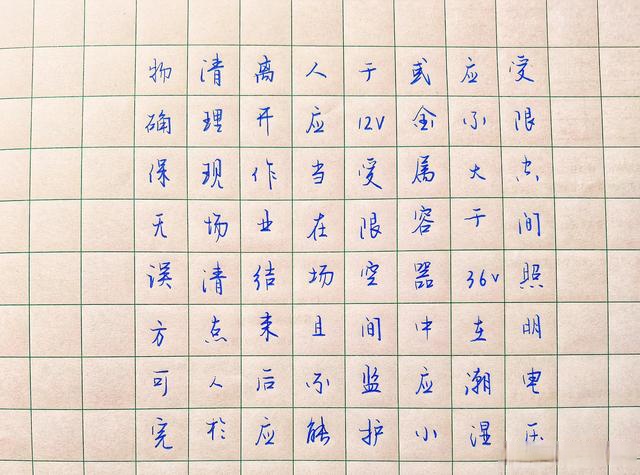 受限空间照明电压
应不大于36v在潮湿
或金属容器中应小
于12V受限空间监护
人应当在场且不能
离开作业结束后应
清理现场清点人於
物确保无误方可完